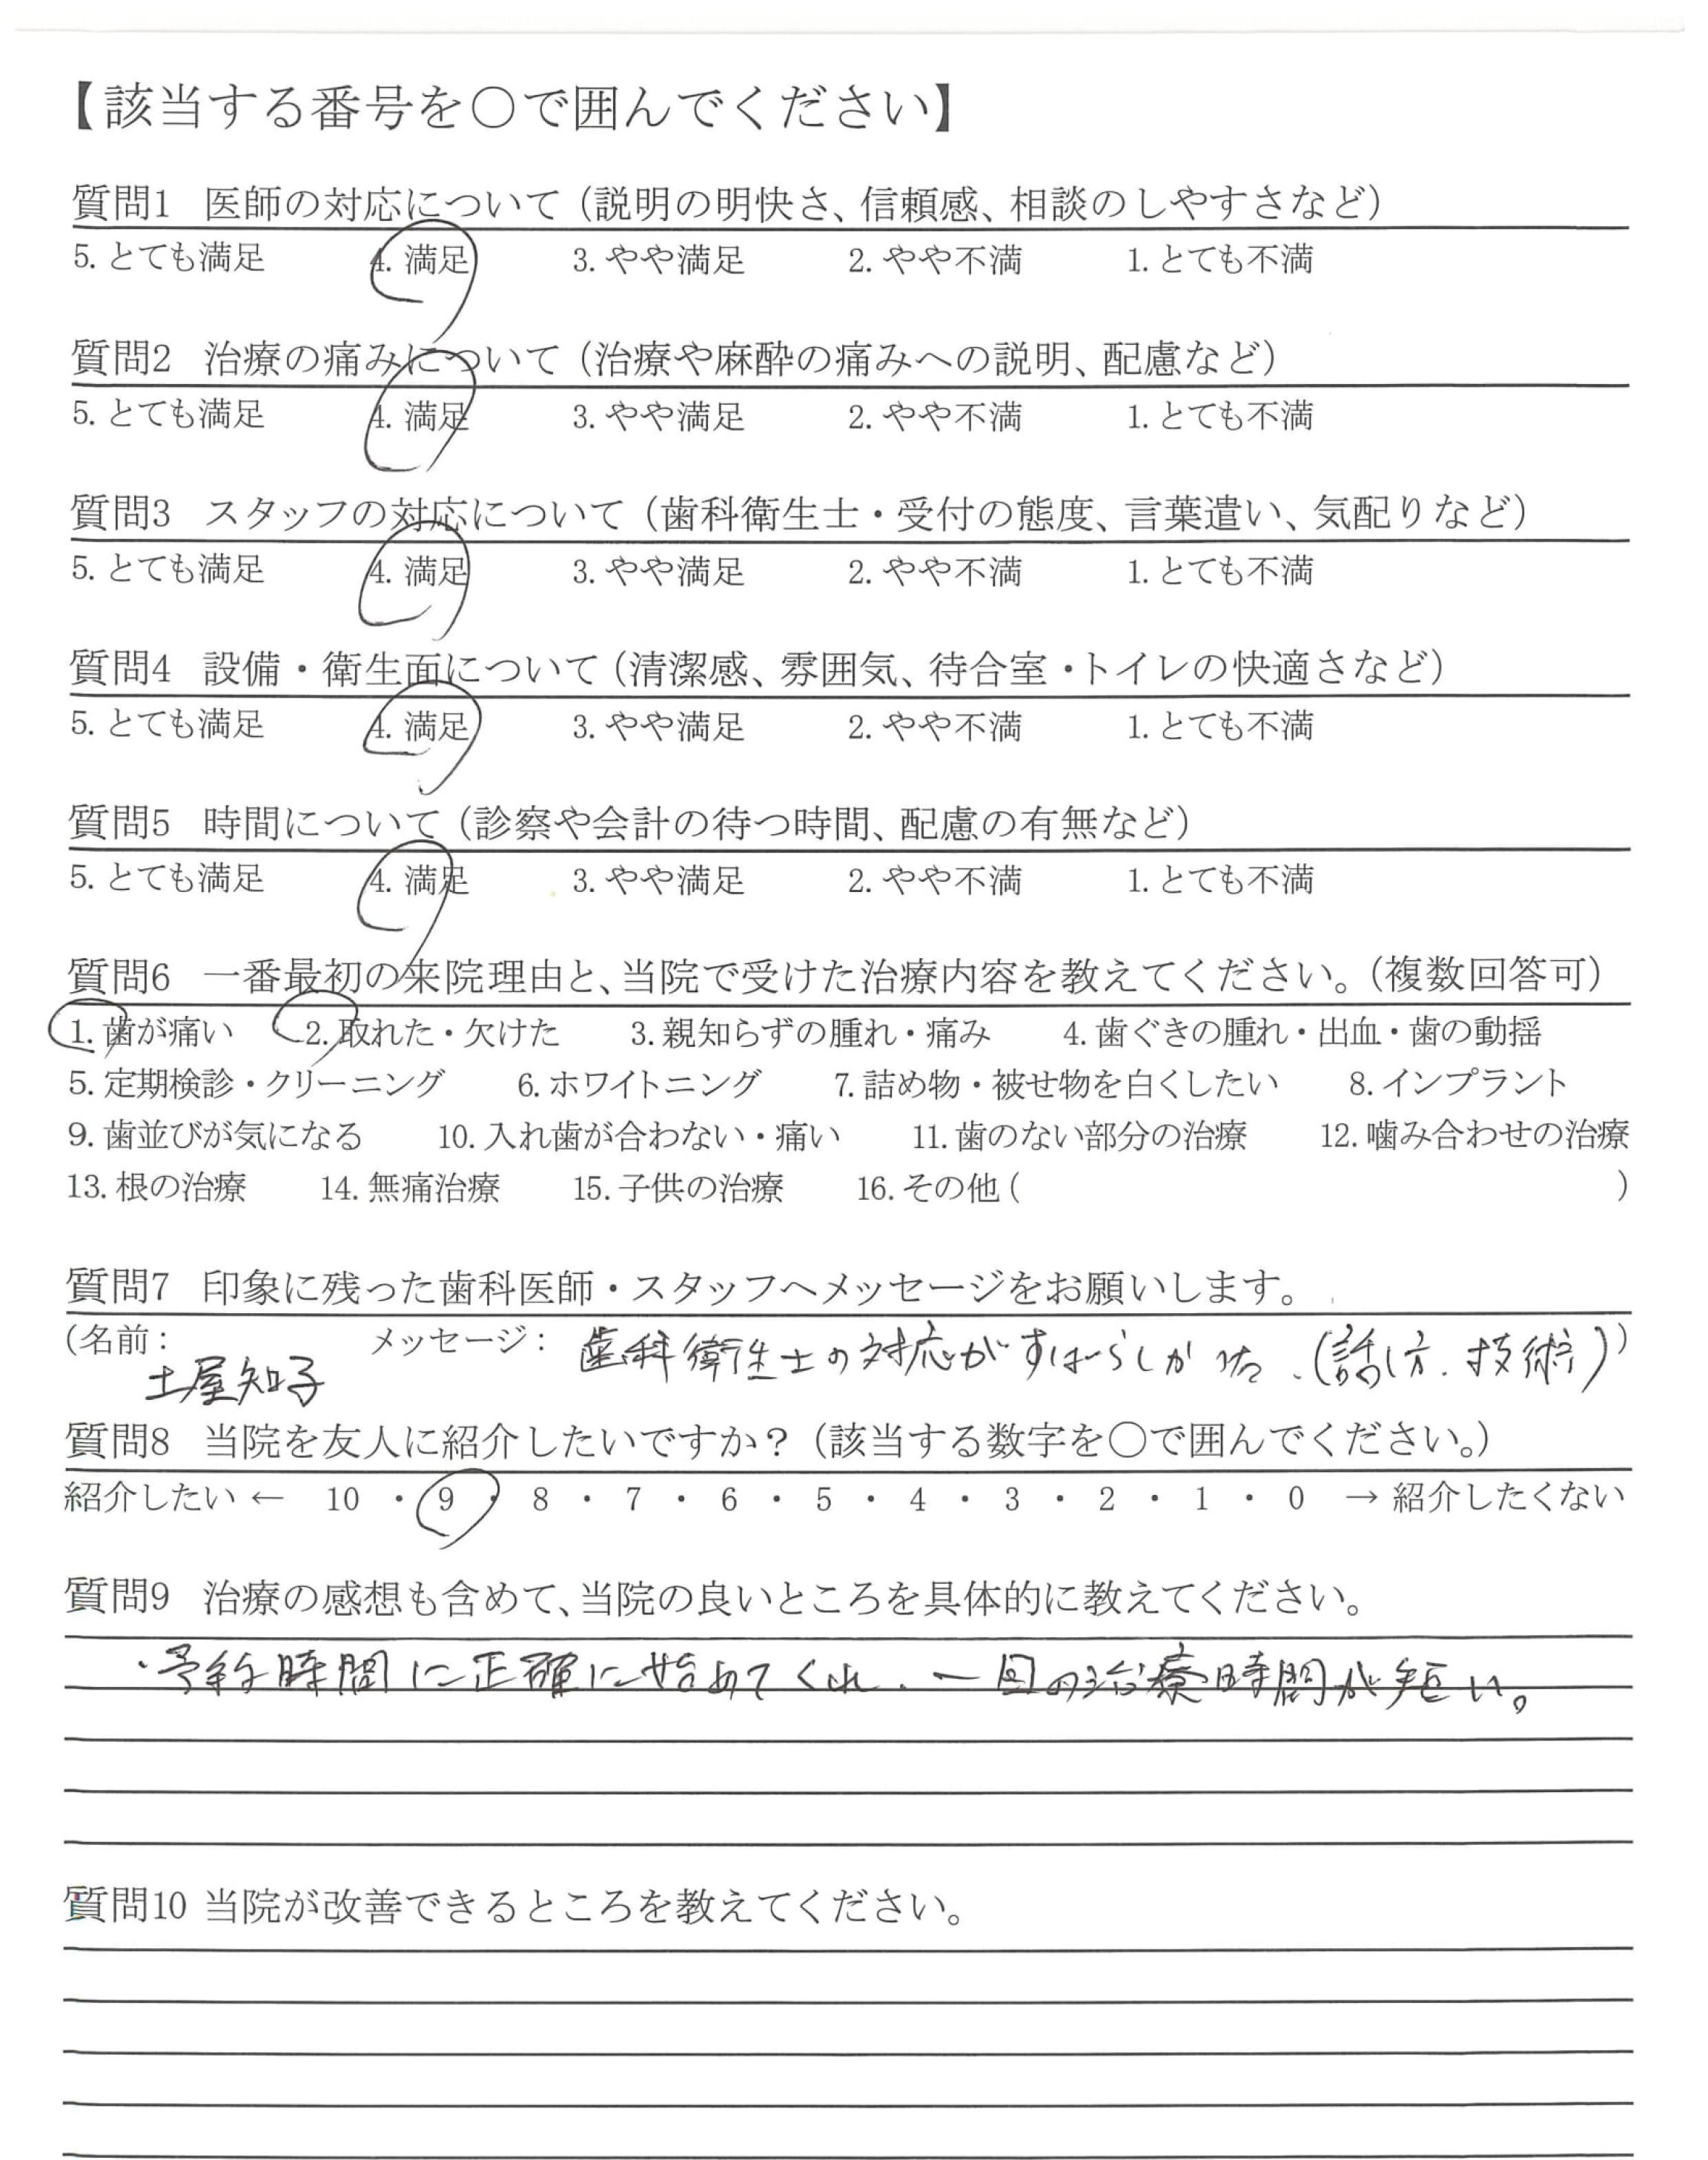 【該当する番号を〇で囲んでください】
質問1 医師の対応について（説明の明快さ、信頼感、相談のしやすさなど）
5. とても満足 4. 満足 3. やや満足 2. やや不満 1. とても不満
質問2 治療の痛みについて（治療や麻酔の痛みへの説明、配慮など）
5. とても満足 4. 満足 3. やや満足 2. やや不満 1. とても不満
質問3 スタッフの対応について（歯科衛生士・受付の態度、言葉遣い、気配りなど）
5. とても満足 4. 満足 3. やや満足 2. やや不満 1. とても不満
質問4 設備・衛生面について（清潔感、雰囲気、待合室・トイレの快適さなど）
5. とても満足 4. 満足 3. やや満足 2. やや不満 1. とても不満
質問5 時間について（診察や会計の待つ時間、配慮の有無など）
5. とても満足 4. 満足 3. やや満足 2. やや不満 1. とても不満
質問6 一番最初の来院理由と、当院で受けた治療内容を教えてください。（複数回答可）
1. 歯が痛い 2. 取れた・欠けた 3. 親知らずの腫れ・痛み 4. 歯ぐきの腫れ・出血・歯の動揺
5. 定期検診・クリーニング 6. ホワイトニング 7. 詰め物・被せ物を白くしたい 8. インプラント
9. 歯並びが気になる 10. 入れ歯が合わない・痛い 11. 歯のない部分の治療 12. 噛み合わせの治療
13. 根の治療 14. 無痛治療 15. 子供の治療 16. その他（ ）
質問7 印象に残った歯科医師・スタッフへメッセージをお願いします。
（名前： メッセージ： 歯科衛生士の対応がすばらしかった.（話し方.技術））
土屋知子
質問8 当院を友人に紹介したいですか？（該当する数字を〇で囲んでください。）
紹介したい ← 10 ・ 9 ・ 8 ・ 7 ・ 6 ・ 5 ・ 4 ・ 3 ・ 2 ・ 1 ・ 0 → 紹介したくない
質問9 治療の感想も含めて、当院の良いところを具体的に教えてください。
・予約時間に正確に始めてくれ、一回の治療時間が短い。
質問10 当院が改善できるところを教えてください。